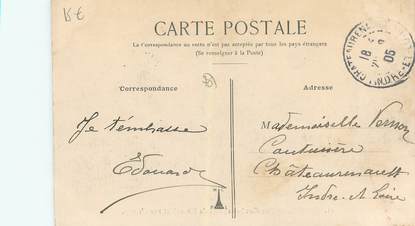 15 €
CARTE POSTALE
La correspondance au recto n'est pas acceptée par tous les pays étrangers
(Se renseigner à la Poste)
Correspondance
Adresse
Je t'embrasse
Edouard
Mademoiselle Vernon
Couturière
Châteaurenault
Indre-et-Loire
CHATEAURENAULT
18
06
INDRE-ET-